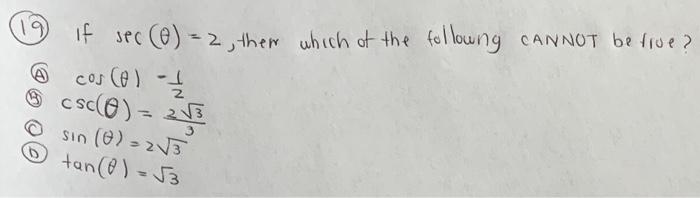 (19) If sec(θ) = 2, then which of the following CANNOT be true?
(A) cos(θ) - 1/2
(B) csc(θ) = 2√3/3
(C) sin(θ) = 2√3
(D) tan(θ) = √3